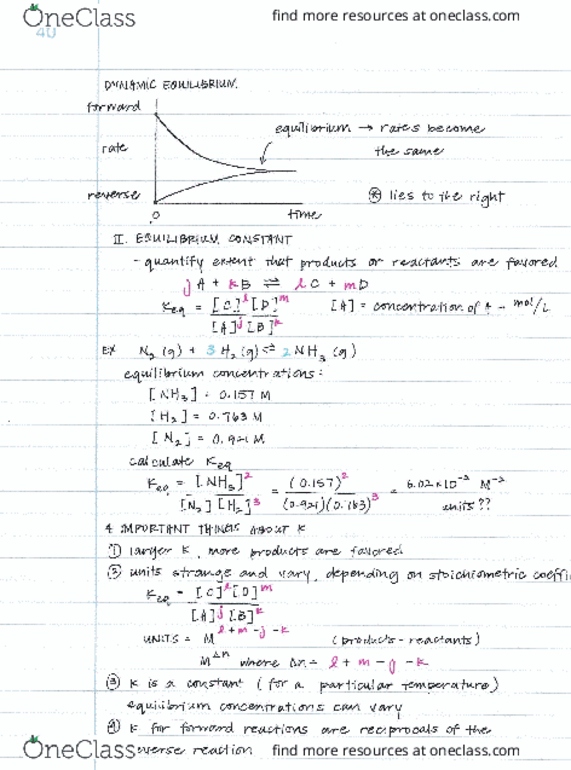 OneClass
find more resources at oneclass.com
4U
DYNAMIC EQUILIBRIUM
forward
rate
reverse
equilibrium → rates become
the same
⊛ lies to the right
0
time
II. EQUILIBRIUM CONSTANT
- quantify extent that products or reactants are favored
jA + kB ⇌ lC + mD
Keq = [C]^l [D]^m / [A]^j [B]^k
[A] = concentration of A - mol/L
EX N₂(g) + 3H₂(g) ⇌ 2NH₃(g)
equilibrium concentrations:
[NH₃] = 0.157 M
[H₂] = 0.763 M
[N₂] = 0.921 M
calculate Keq
Keq = [NH₃]² / [N₂][H₂]³ = (0.157)² / (0.921)(0.763)³ = 6.02 x 10⁻² M⁻²
units??
4 IMPORTANT THINGS ABOUT K
① larger K, more products are favored
② units strange and vary, depending on stoichiometric coeffi
Keq = [C]^l [D]^m / [A]^j [B]^k
UNITS = M^l+m-j-k (products - reactants)
M^Δn where Δn = l + m - j - k
③ K is a constant (for a particular temperature)
equilibrium concentrations can vary
④ K for forward reactions are reciprocals of the
everse reaction
OneClass
find more resources at oneclass.com